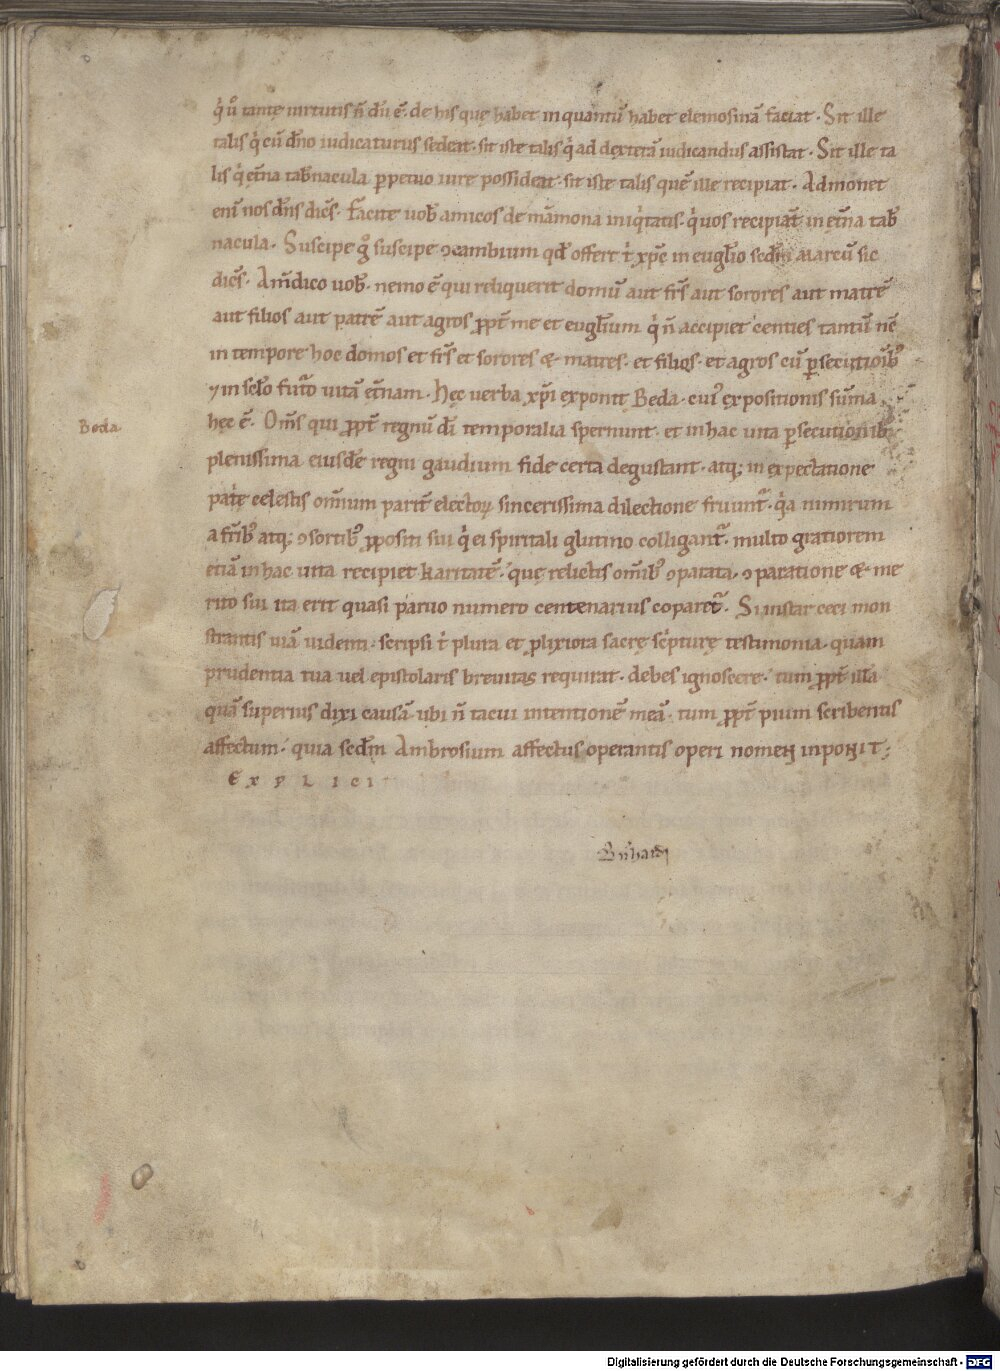 q̓ ů tantę uirtutis n̄ dū ē. de his quę habet inquantū habet elemosinā faciat. Sit ille
talis q̓ cū dn̄o iudicaturus sedeat. sit iste talis q̓ ad dexterā iudicandus assistat. Sit ille ta
lis q̓ et̄na tab̄nacula ꝑpetuo iure possideat. sit iste talis quē ille recipiat. Admonet
eni nos dn̄s dicēs. Facite uob̄ amicos de māmona iniq̓tatis. q̓ uos recipiāt in et̄na tab̄
nacula. Suscipe g̊ suscipe ꝯcambium qđ offert t̓ xp̄c in eugl̄io scdm̄ Marcū sic
dicēs. Am̄ dico uob̄. nemo ē qui reliquerit domū aut fr̄s aut sorores aut matrē
aut filios aut patrē aut agros ꝓpt̄ me et eugl̄ium q̓ n̄ accipiet centies tantū nc̄
in tempore hoc domos et fr̄s et sorores & matres. et filios. et agros cū ꝑsecutionib᷒
⁊ in scl̄o futᷓo uitā et̄nam. Hęc uerba xp̄i exponit Beda. cui᷒ expositionis sūma
Beda
hęc ē. Om̄s qui ꝓpt̄ regnū dī temporalia spernunt. et in hac uita ꝑsecutionib᷒
plenissima eiusdē regni gaudium fide certa degustant. atq; in expectatione
pat̓ę celestis om̄ium parit̄ electoꝝ sincerissima dilectione fruunt᷑. q̓a nimirum
a frīb᷒ atq; ꝯsortib᷒ ꝓpositi sui q̓ ei spiritali glutino colligant᷑. multo gratiorem
etiā in hac uita recipiet karitatē. quę relictis om̄ib᷒ ꝯparata. ꝯparatione & me
rito sui ita erit quasi paruo numero centenarius coparet᷑. Si instar ceci mon
strantis uiā uidenti. scripsi t̓ plura et ꝓlixiora sacrę sc̓pturę testimonia. quam
prudentia tua uel epistolaris breuitas requirat. debes ignoscere. tum ꝓpt̄ illā
quā superius dixi causā. ubi n̄ tacui intentionē meā. tum ꝓpt̄ pium scribentis
affectum. quia scdm̄ Ambrosium affectus operantis operi nomen inponit;
Explicit
Bn̄hardj
Digitalisierung gefördert durch die Deutsche Forschungsgemeinschaft - DFG